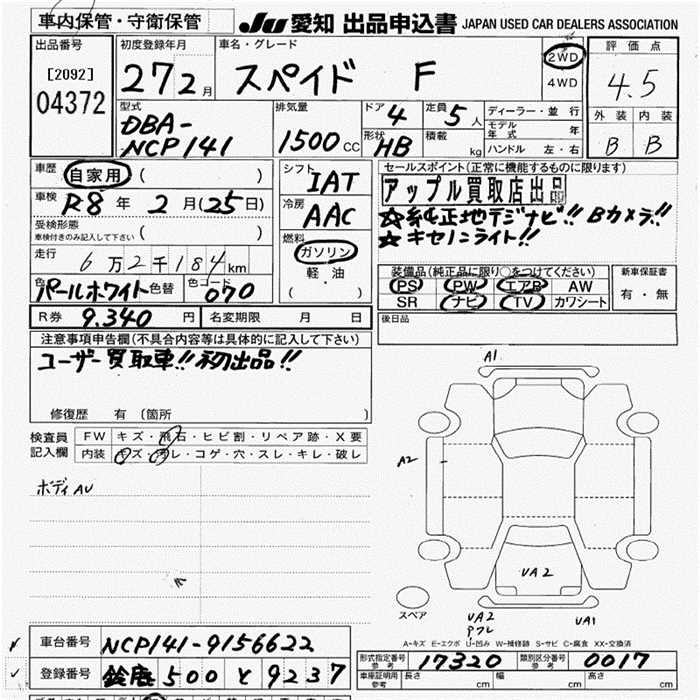 車内保管・守衛保管
JU 愛知 出品申込書 JAPAN USED CAR DEALERS ASSOCIATION
出品番号
[2092]
04372
初度登録年月
27 2月
車名・グレード
スペイド F
2WD
4WD
評価点
4.5
外装 内装
B B
型式
DBA-
NCP141
排気量
1500CC
ドア 4
形状 HB
定員 5人
積載 kg
ディーラー・並行
モデル年式 年
ハンドル 左・右
車歴 自家用 ( )
車検 R8年 2月(25日)
受検形態
車検付きのみ記入して下さい ( )
走行 6万2千184km
色 パールホワイト 色替 色コード 070
シフト IAT
冷房 AAC
燃料
ガソリン
軽・油
( )
セールスポイント(正常に機能するものに限ります)
アップル買取店出品
☆純正地デジナビ!! Bカメラ!!
☆キセノンライト!!
装備品(純正品に限り○をつけてください)
PS PW エアB AW
SR ナビ TV カワシート
新車保証書
有・無
後日品
R券 9.340円 名変期限 月 日
注意事項申告欄(不具合内容等は具体的に記入して下さい)
ユーザー買取車!! 初出品!!
修復歴 有 (箇所 )
検査員記入欄
FW キズ・飛石・ヒビ割・リペア跡・X要
内装 キズ・ヨレ・コゲ・穴・スレ・キレ・破レ
ボディAU
A1
A2
UA2
スペア
UA2
Pフレ
UA1
A-キズ E-エクボ U-凹み W-補修跡 S-サビ C-腐食 XX-交換済
車台番号 NCP141-9156622
登録番号 鈴鹿 500 と 9237
形式指定番号 参考 17320 類別区分番号 参考 0017
車庫証明用 参考 長さ cm 幅 cm 高さ cm